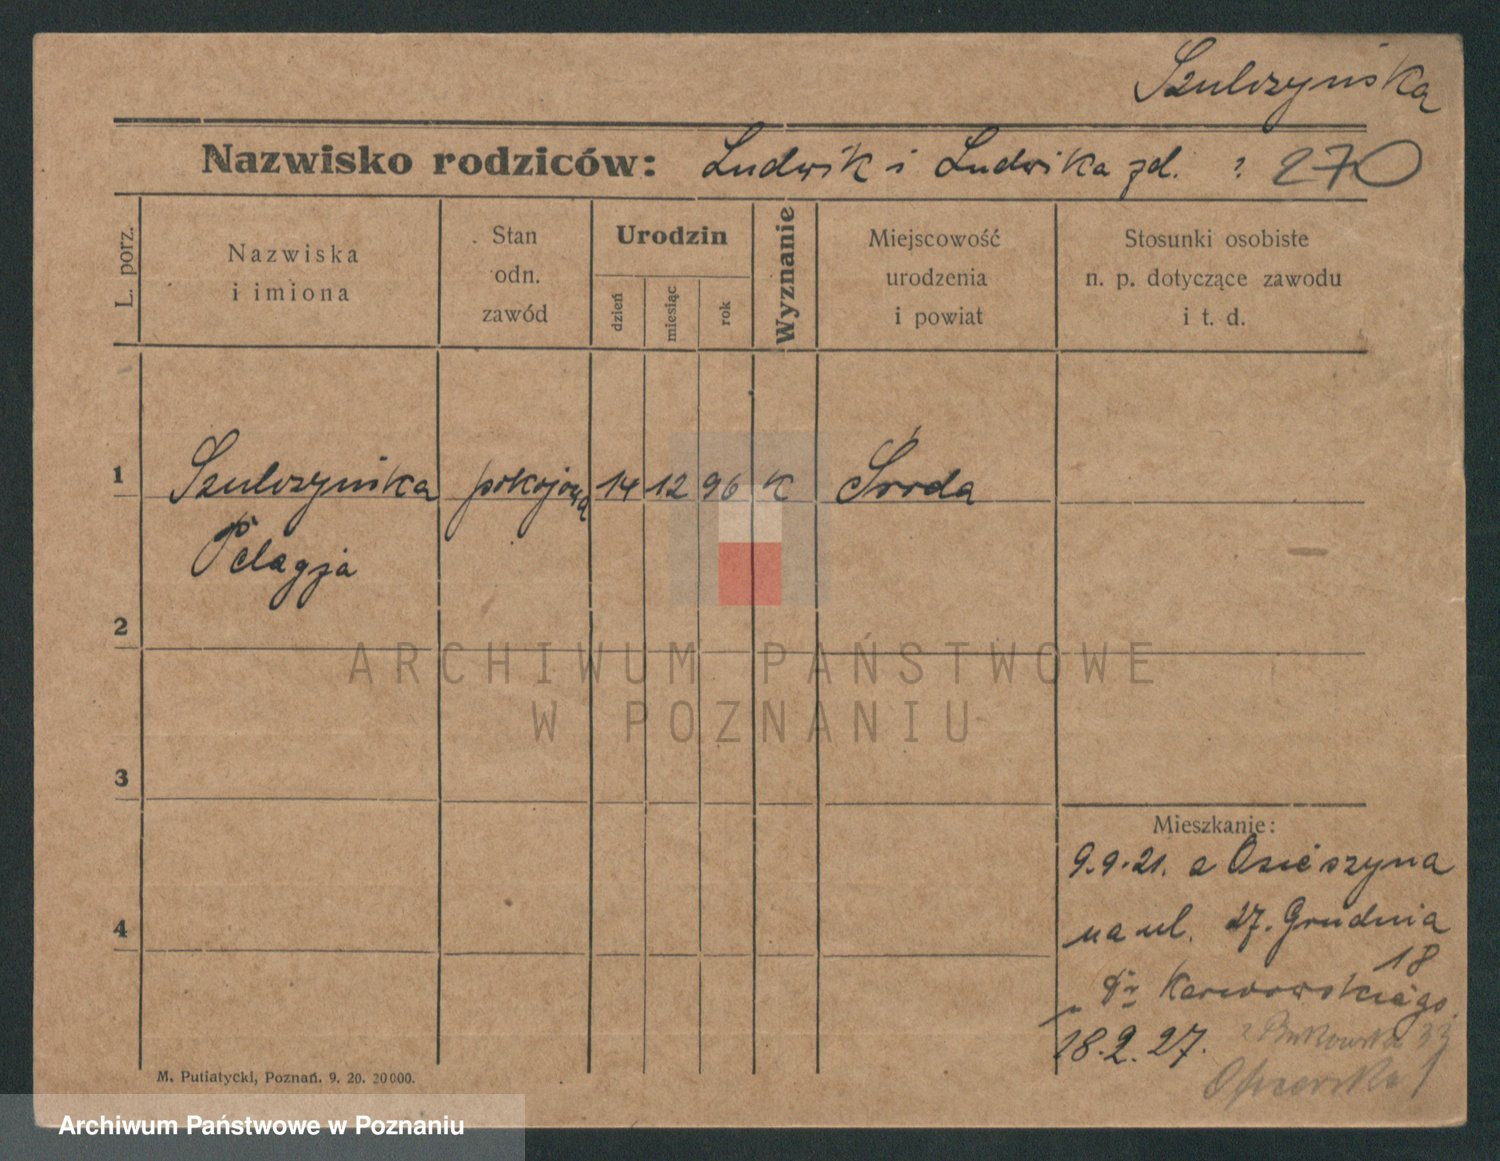 Szulczyńska
Nazwisko rodziców: Ludwik i Ludwika zd. ? 270
L. porz.
Nazwiska
i imiona
Stan
odn.
zawód
Urodzin
dzień
miesiąc
rok
Wyznanie
Miejscowość
urodzenia
i powiat
Stosunki osobiste
n. p. dotyczące zawodu
i t. d.
1 Szulczyńska pokojowa 14 12 96 k Środa
Pelagja
2
ARCHIWUM PAŃSTWOWE
W POZNANIU
3
Mieszkanie:
9.9.21. z Osieszyna
4
na ul. 27. Grudnia
18
" Dr Karwowskiego
18.2.27. z Bukowska 33
M. Putiatycki, Poznań. 9. 20. 20000.
Archiwum Państwowe w Poznaniu